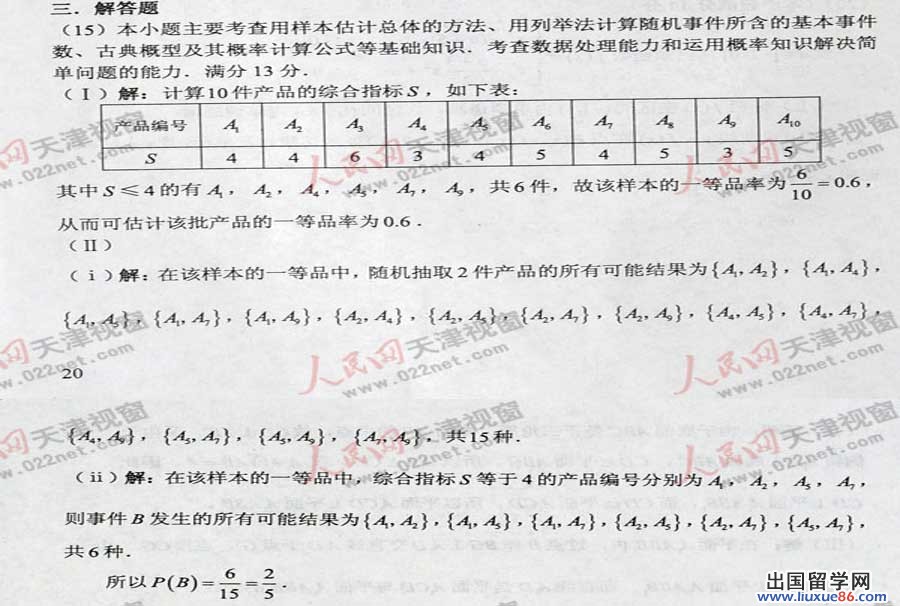 三．解答题
（15）本小题主要考查用样本估计总体的方法、用列举法计算随机事件所含的基本事件
数、古典概型及其概率计算公式等基础知识．考查数据处理能力和运用概率知识解决简
单问题的能力．满分 13 分．
（Ⅰ）解：计算10件产品的综合指标 S ，如下表：
产品编号 A₁ A₂ A₃ A₄ A₅ A₆ A₇ A₈ A₉ A₁₀
S 4 4 6 3 4 5 4 5 3 5
其中 S ≤ 4 的有 A₁ ， A₂ ， A₄ ， A₅ ， A₇ ， A₉ ，共6 件，故该样本的一等品率为 6/10 = 0.6 ，
从而可估计该批产品的一等品率为 0.6．
（Ⅱ）
（ⅰ）解：在该样本的一等品中，随机抽取 2 件产品的所有可能结果为 {A₁, A₂} ， {A₁, A₄} ，
{A₁, A₅} ， {A₁, A₇} ， {A₁, A₉} ， {A₂, A₄} ， {A₂, A₅} ， {A₂, A₇} ， {A₂, A₉} ， {A₄, A₅} ， {A₄, A₇} ，
20
{A₄, A₉} ， {A₅, A₇} ， {A₅, A₉} ， {A₇, A₉} ，共15种．
（ii）解：在该样本的一等品中，综合指标 S 等于 4 的产品编号分别为 A₁ ， A₂ ， A₅ ， A₇ ，
则事件 B 发生的所有可能结果为 {A₁, A₂} ， {A₁, A₅} ， {A₁, A₇} ， {A₂, A₅} ， {A₂, A₇} ， {A₅, A₇} ，
共 6 种．
所以 P(B) = 6/15 = 2/5 ．
人民网 天津视窗
www.022net.com
出国留学网
www.liuxue86.com